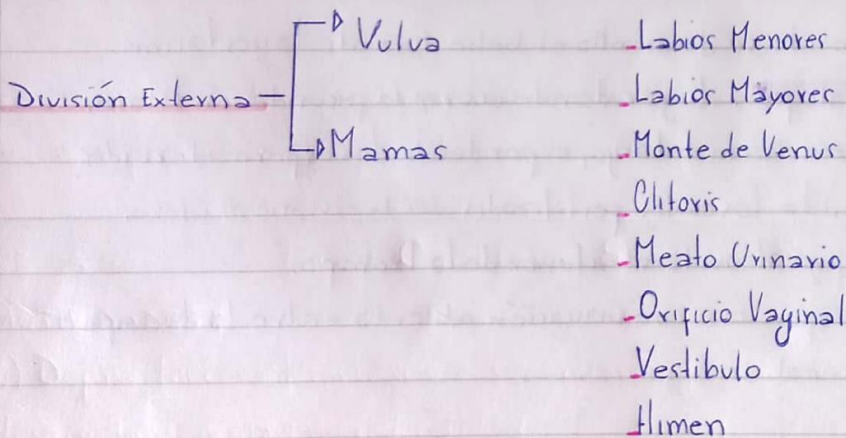 Vulva
División Externa
Mamas
- Labios Menores
- Labios Mayores
- Monte de Venus
- Clitoris
- Meato Urinario
- Orificio Vaginal
- Vestibulo
- Himen